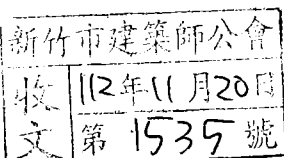 新竹市建築師公會
收文
112年11月20日
第1535號